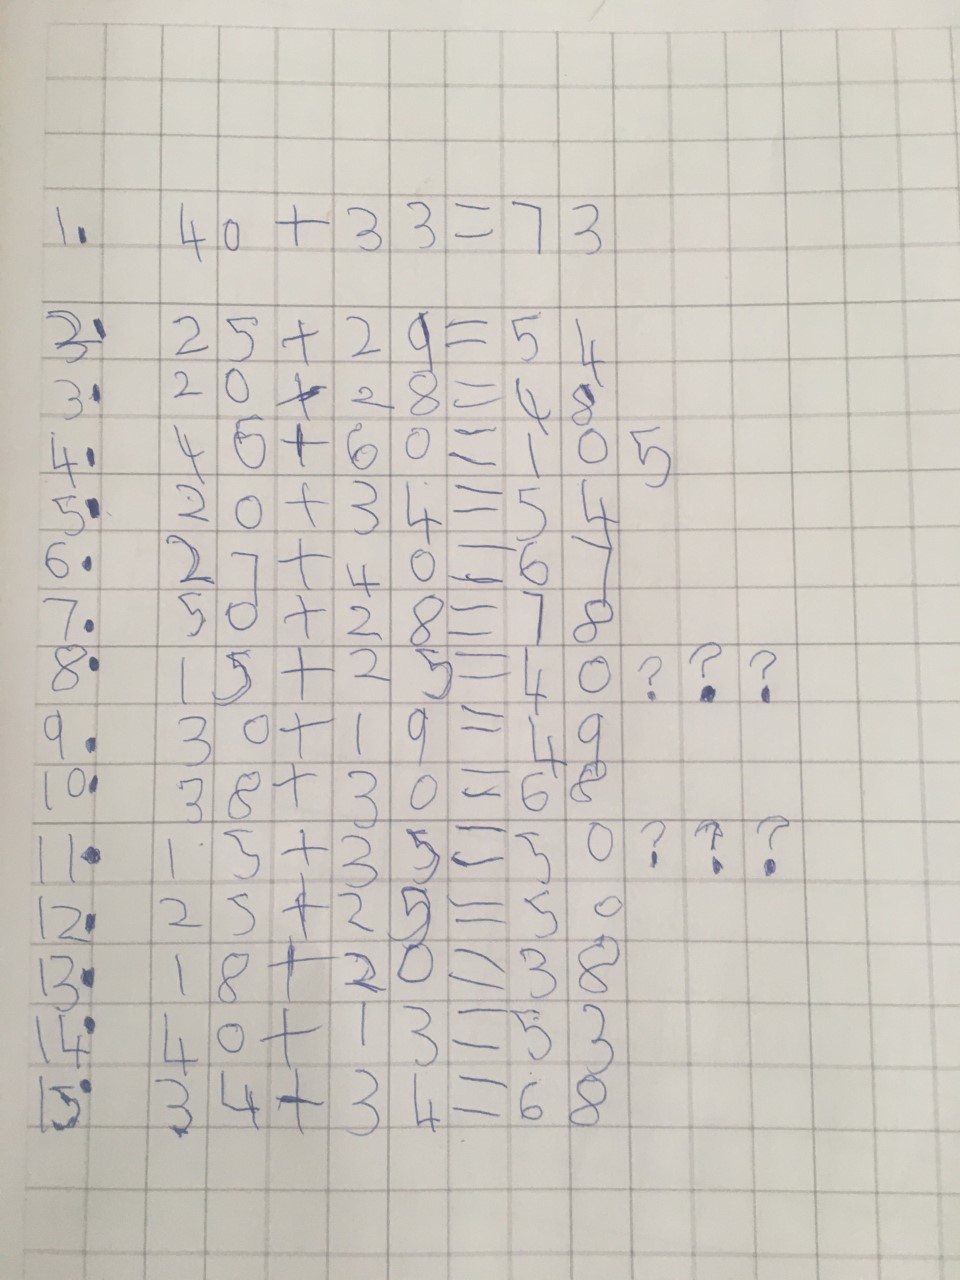 1. 40 + 33 = 73
2. 25 + 29 = 54
3. 20 + 28 = 48
4. 45 + 60 = 105
5. 20 + 34 = 54
6. 27 + 40 = 67
7. 50 + 28 = 78
8. 15 + 25 = 40 ???
9. 30 + 19 = 49
10. 38 + 30 = 68
11. 15 + 35 = 50 ???
12. 25 + 25 = 50
13. 18 + 20 = 38
14. 40 + 13 = 53
15. 34 + 34 = 68